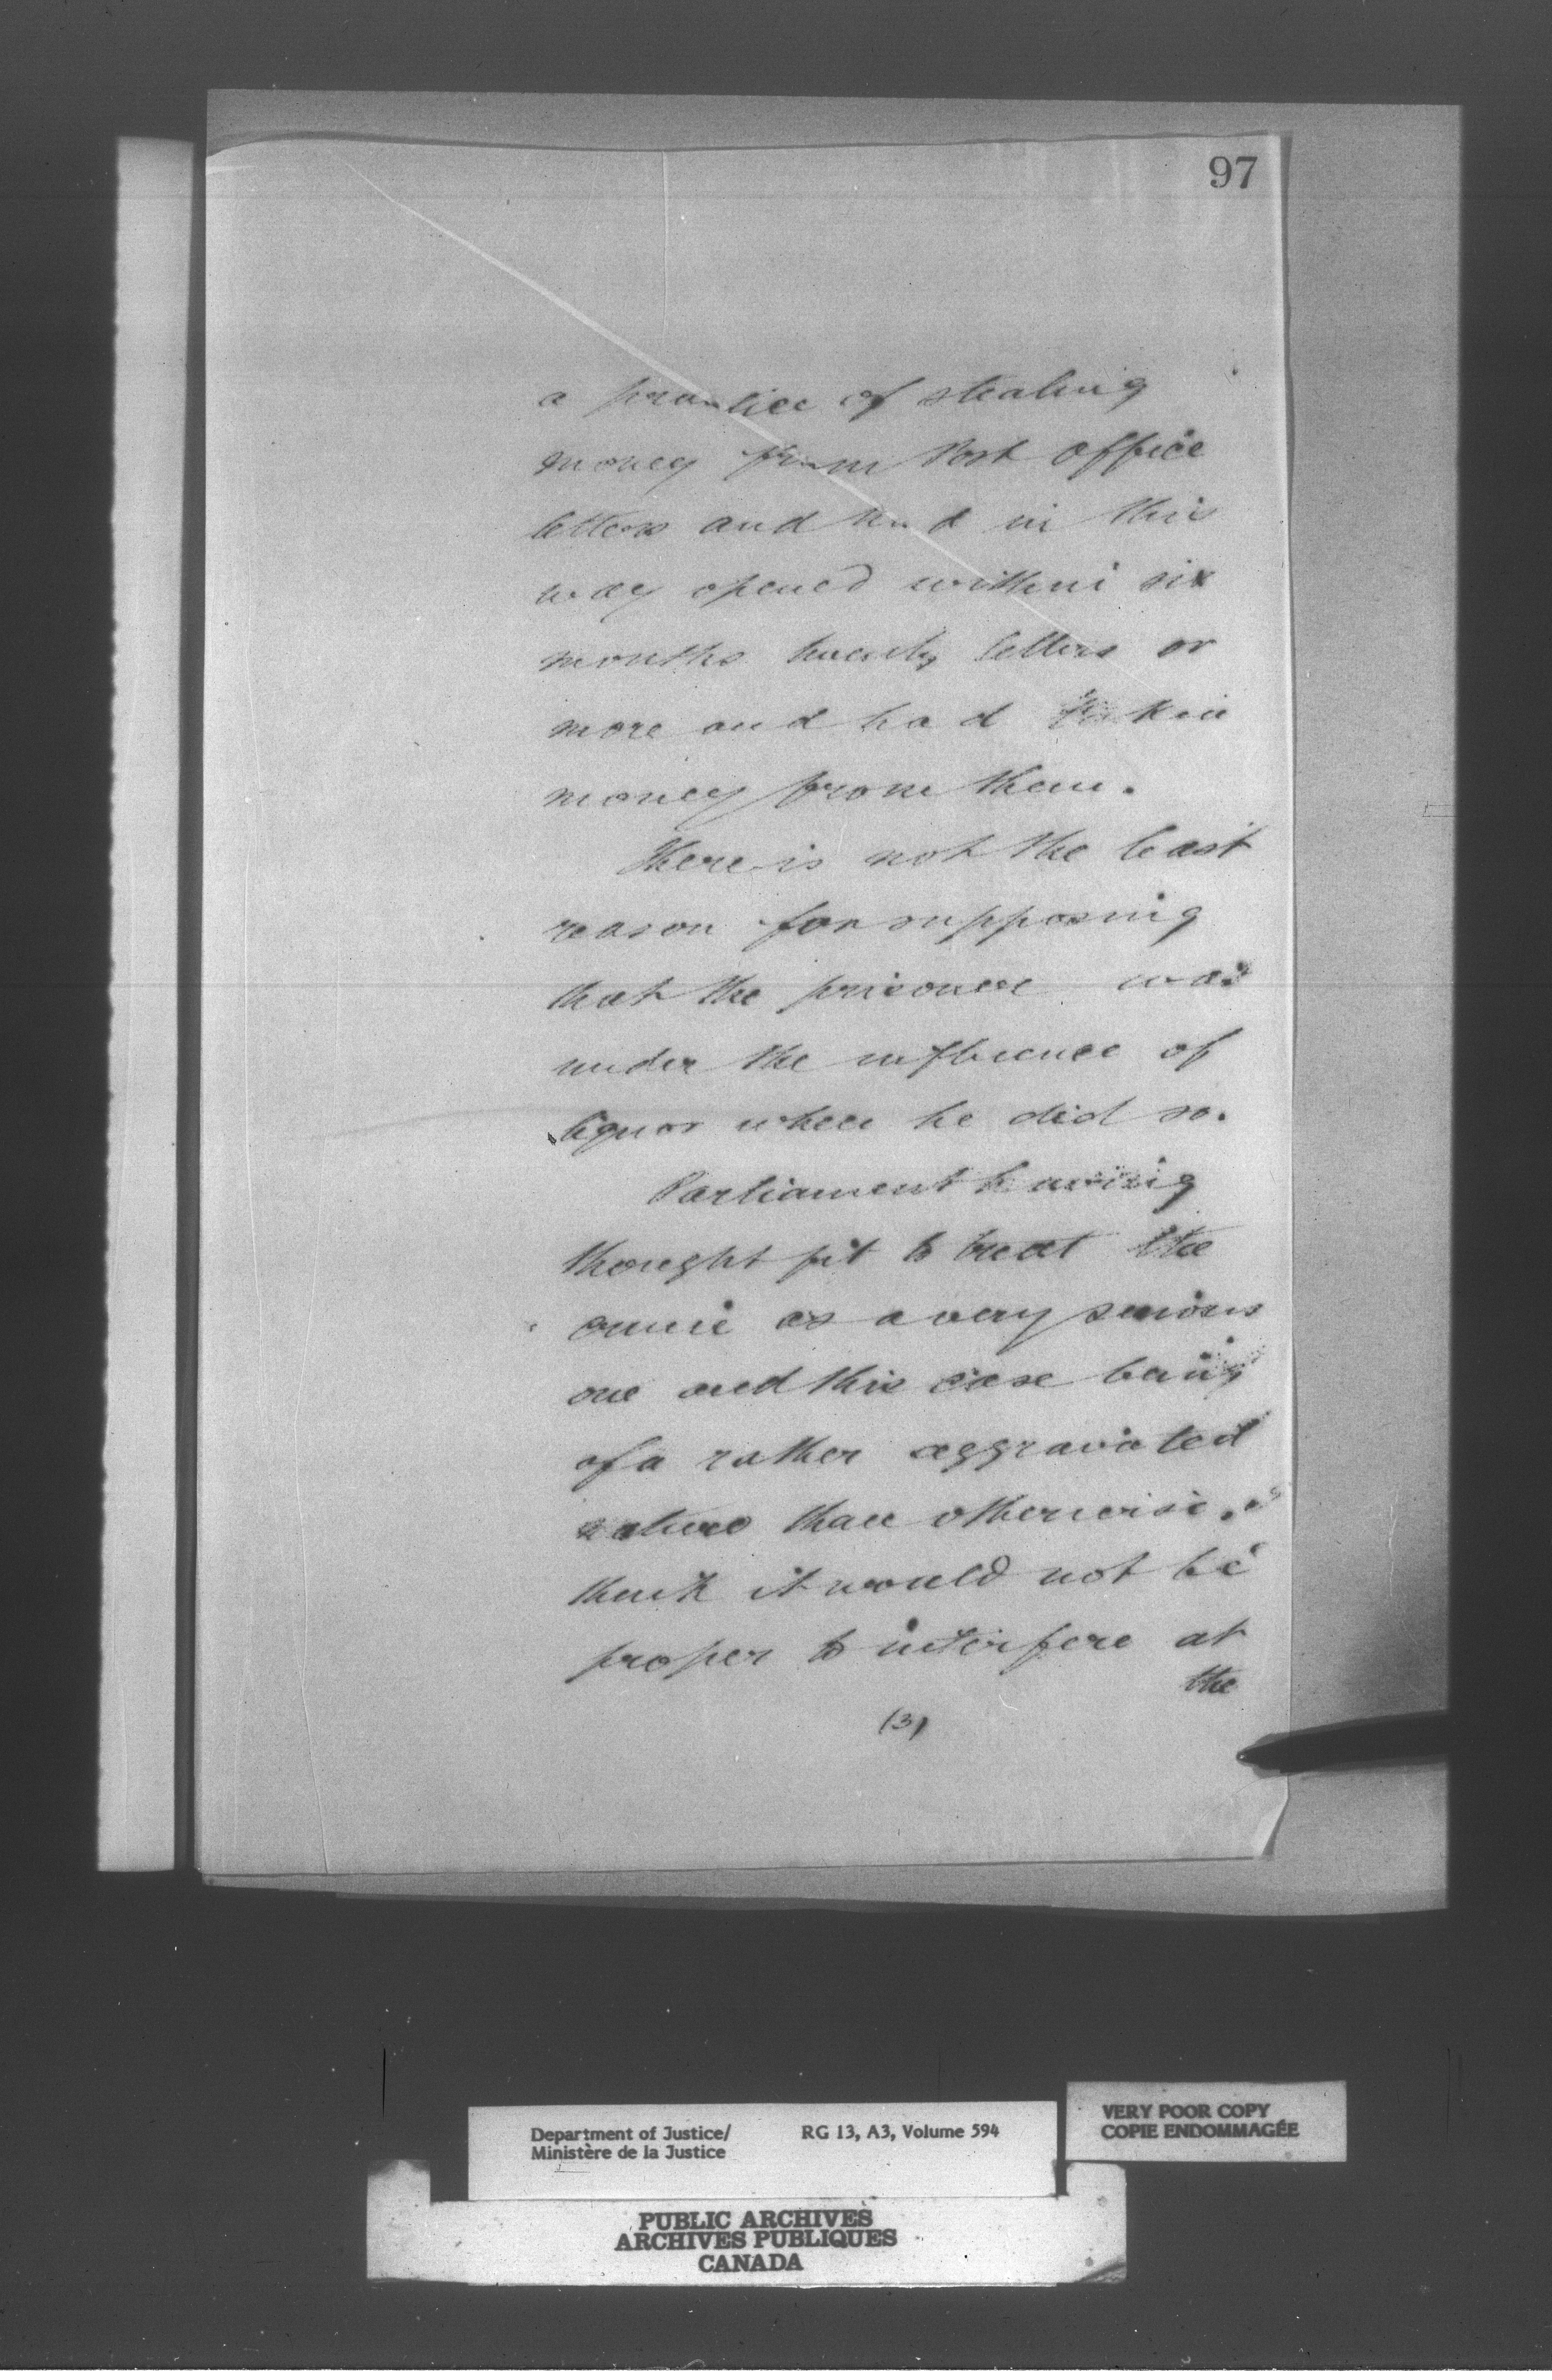 97
a practice of stealing
money from Post Office
letters and had in this
way opened within six
months twenty letters or
more and had taken
money from them.
There is not the least
reason for supposing
that the prisoner was
under the influence of
liquor when he did so.
Parliament having
thought fit to treat the
crime as a very serious
one and this case being
of a rather aggravated
nature than otherwise.
think it would not be
proper to interfere at
the
(3)
Department of Justice/ RG 13, A3, Volume 594
Ministère de la Justice
VERY POOR COPY
COPIE ENDOMMAGÉE
PUBLIC ARCHIVES
ARCHIVES PUBLIQUES
CANADA